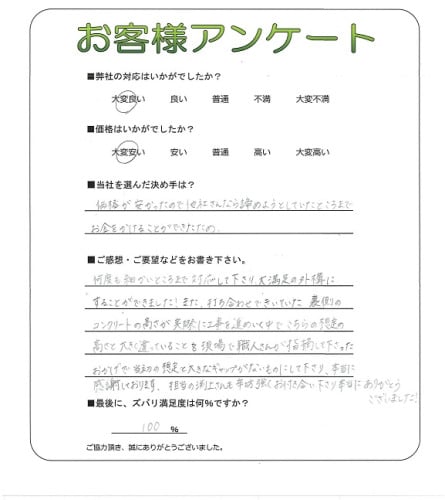 お客様アンケート
■弊社の対応はいかがでしたか?
大変良い 良い 普通 不満 大変不満
■価格はいかがでしたか?
大変安い 安い 普通 高い 大変高い
■当社を選んだ決め手は?
価格が安かったので他社さんなら諦めようとしていたところまで
お金をかけることができたため.
■ご感想・ご要望などをお書き下さい。
何度も細かいところまで対応して下さり大満足の外構に
することができました!また、打ち合わせできいていた 裏側の
コンクリートの高さが実際に工事を進めていく中でこちらの想定の
高さと大きく違っていることを現場で職人さんが指摘して下さった
おかげで当初の想定と大きなギャップがないものにして下さり、本当に
感謝しております。担当の渕上さんも年始強くお付き合い下さり本当にありがとう
ございました!
■最後に、ズバリ満足度は何%ですか?
100 %
ご協力頂き、誠にありがとうございました。